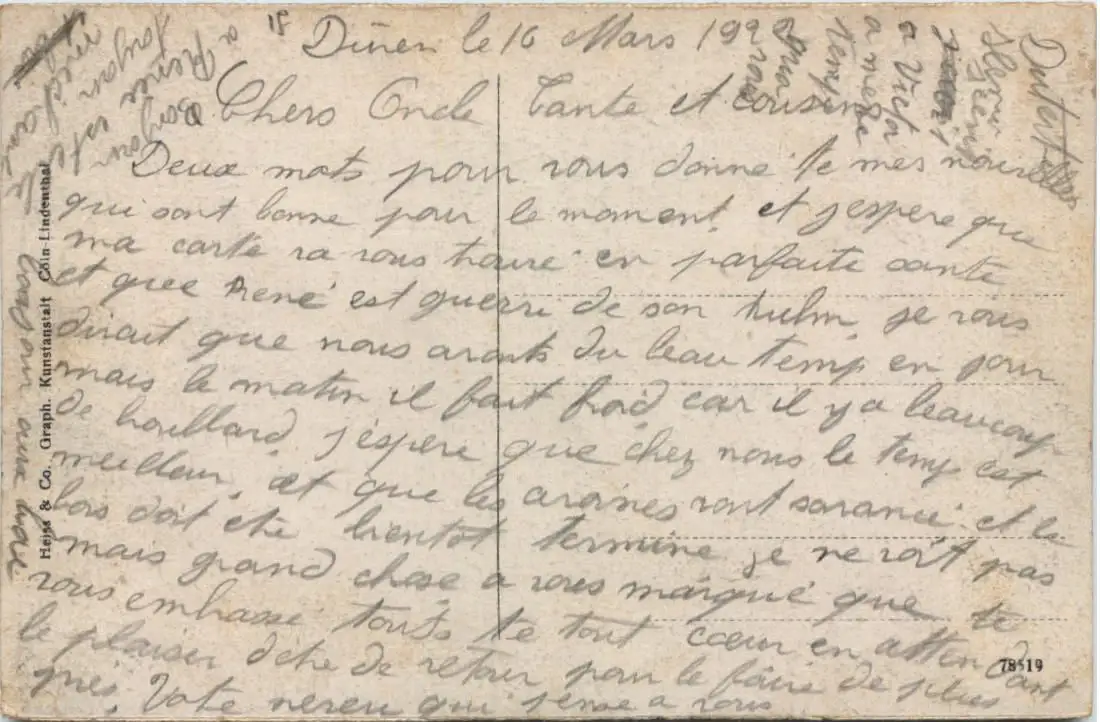 Düren le 16 Mars 192
Chers Oncle Tante et cousin
Deux mots pour vous donne de mes nouvelles
qui sont bonne pour le moment, et j'espere que
ma carte va vous trouvé en parfaite sante
et que René est gueri de son rhûm, je vous
dirait que nous avonts du beau temp en jour
mais le matin il fait froid car il y a beaucoup
de brouillard, j'éspère que chez nous le temp est
meilleur, et que les avoines vont s'avancé et le
bois doit etre bientôt terminé je ne voit pas
mais grand chose a vous marqué que te
vous embrassé touts te tout cœur en attendant
le plaisir d'etre de retour pour le faire de plus
près. Vote neveu qui pense a vous
bonjour aux
a René Bonjour
a Victor
temp
Heiss & Co., Graph. Kunstanstalt Cöln-Lindenthal
78519